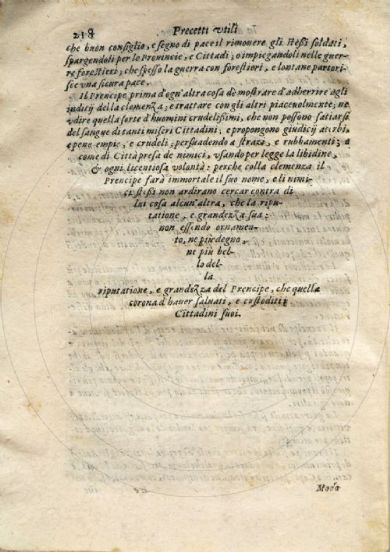 218 Precetti utili
che buon consiglio, e segno di pace il rimouere gli stessi soldati,
spargendoli per le Prouincie, e Cittadi; o impiegandoli nelle guer-
re forestieri; che spesso la guerra con forestieri, e lontane partori-
sce vna sicura pace.
Il Prencipe prima d'ogn'altra cosa dè mostrare d'adherire agli
indicij della clemenza; e trattare con gli altri piaceuolmente; ne
vdire quella sorte d'huomini crudelissimi, che non possono satiarsi
del sangue di tanti miseri Cittadini, e propongono giudicij acerbi,
e pene empie, e crudeli; persuadendo a straza, e rubbamenti; a
come di Città presa de nemici, vsando per legge la libidine,
& ogni licentiosa volontà: perche colla clemenza il
Prencipe farà immortale il suo nome, e li nimi-
ci stessi non ardirano cercar contra di
lui cosa alcun'altra, che la ripu-
tatione, e grandezza sua:
non essendo ornamen-
to, ne più degno,
ne più bel-
lo del-
la
riputatione, e grandezza del Prencipe, che quella
corona d'hauer saluati, e custoditi i
Cittadini suoi.
Moda